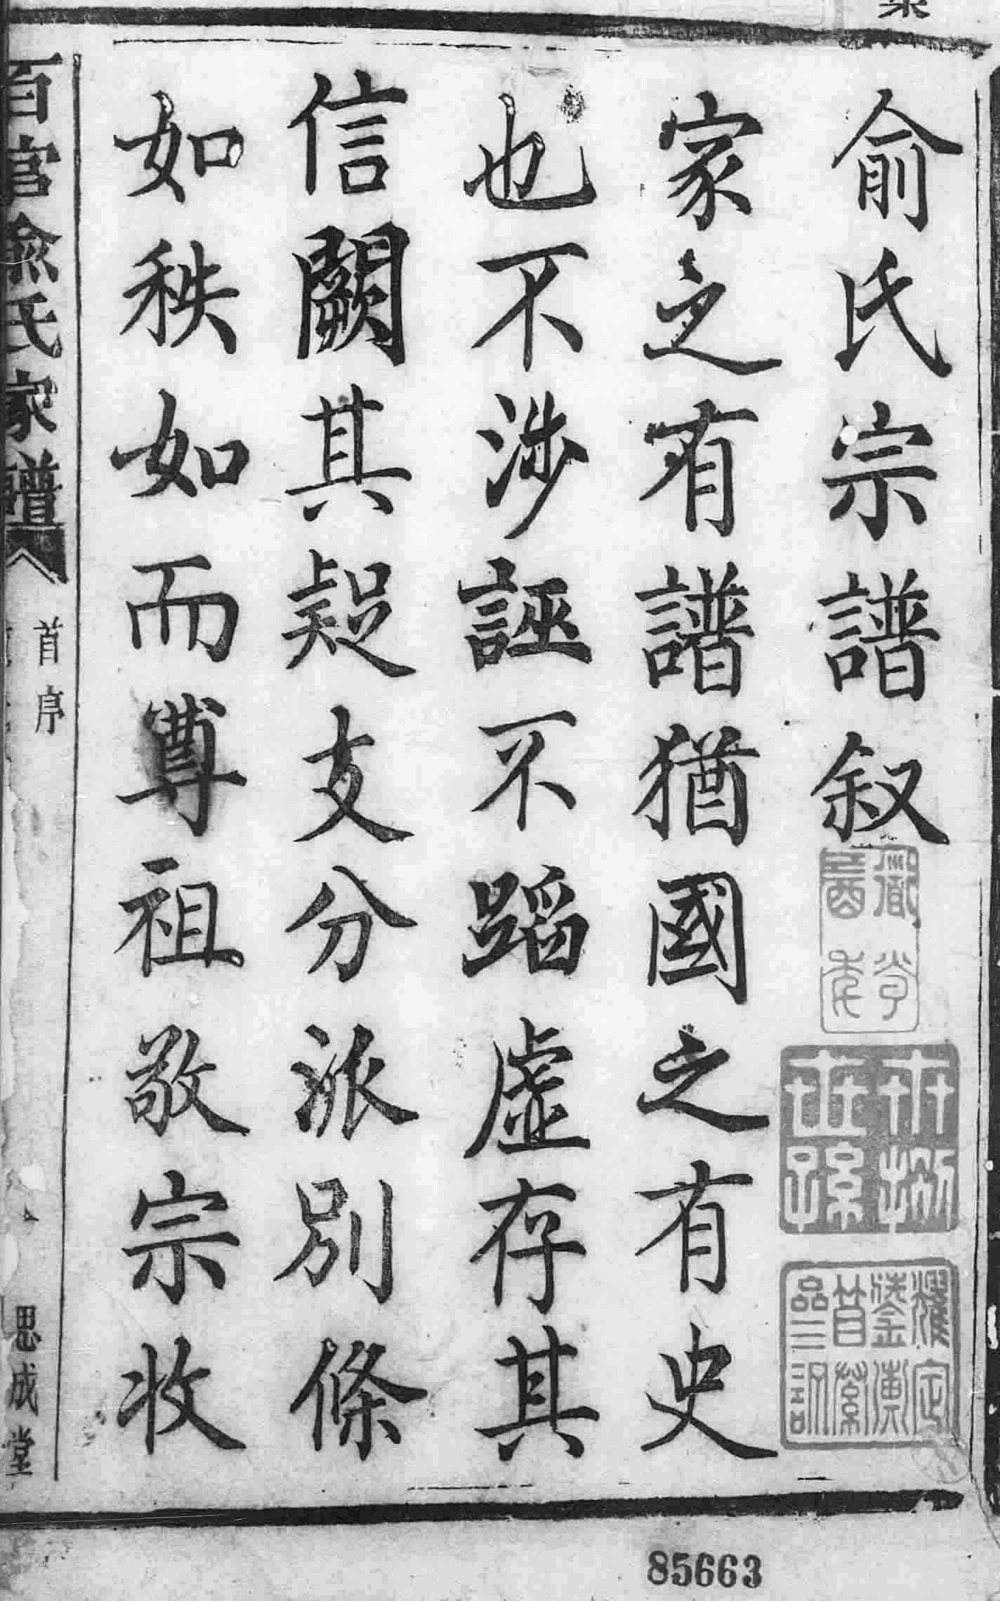 俞氏宗譜叙
家之有譜猶國之有史
也不涉誣不蹈虛存其
信闕其疑支分派別條
如秩如而尊祖敬宗收
百官俞氏家譜
首序
思成堂
85663